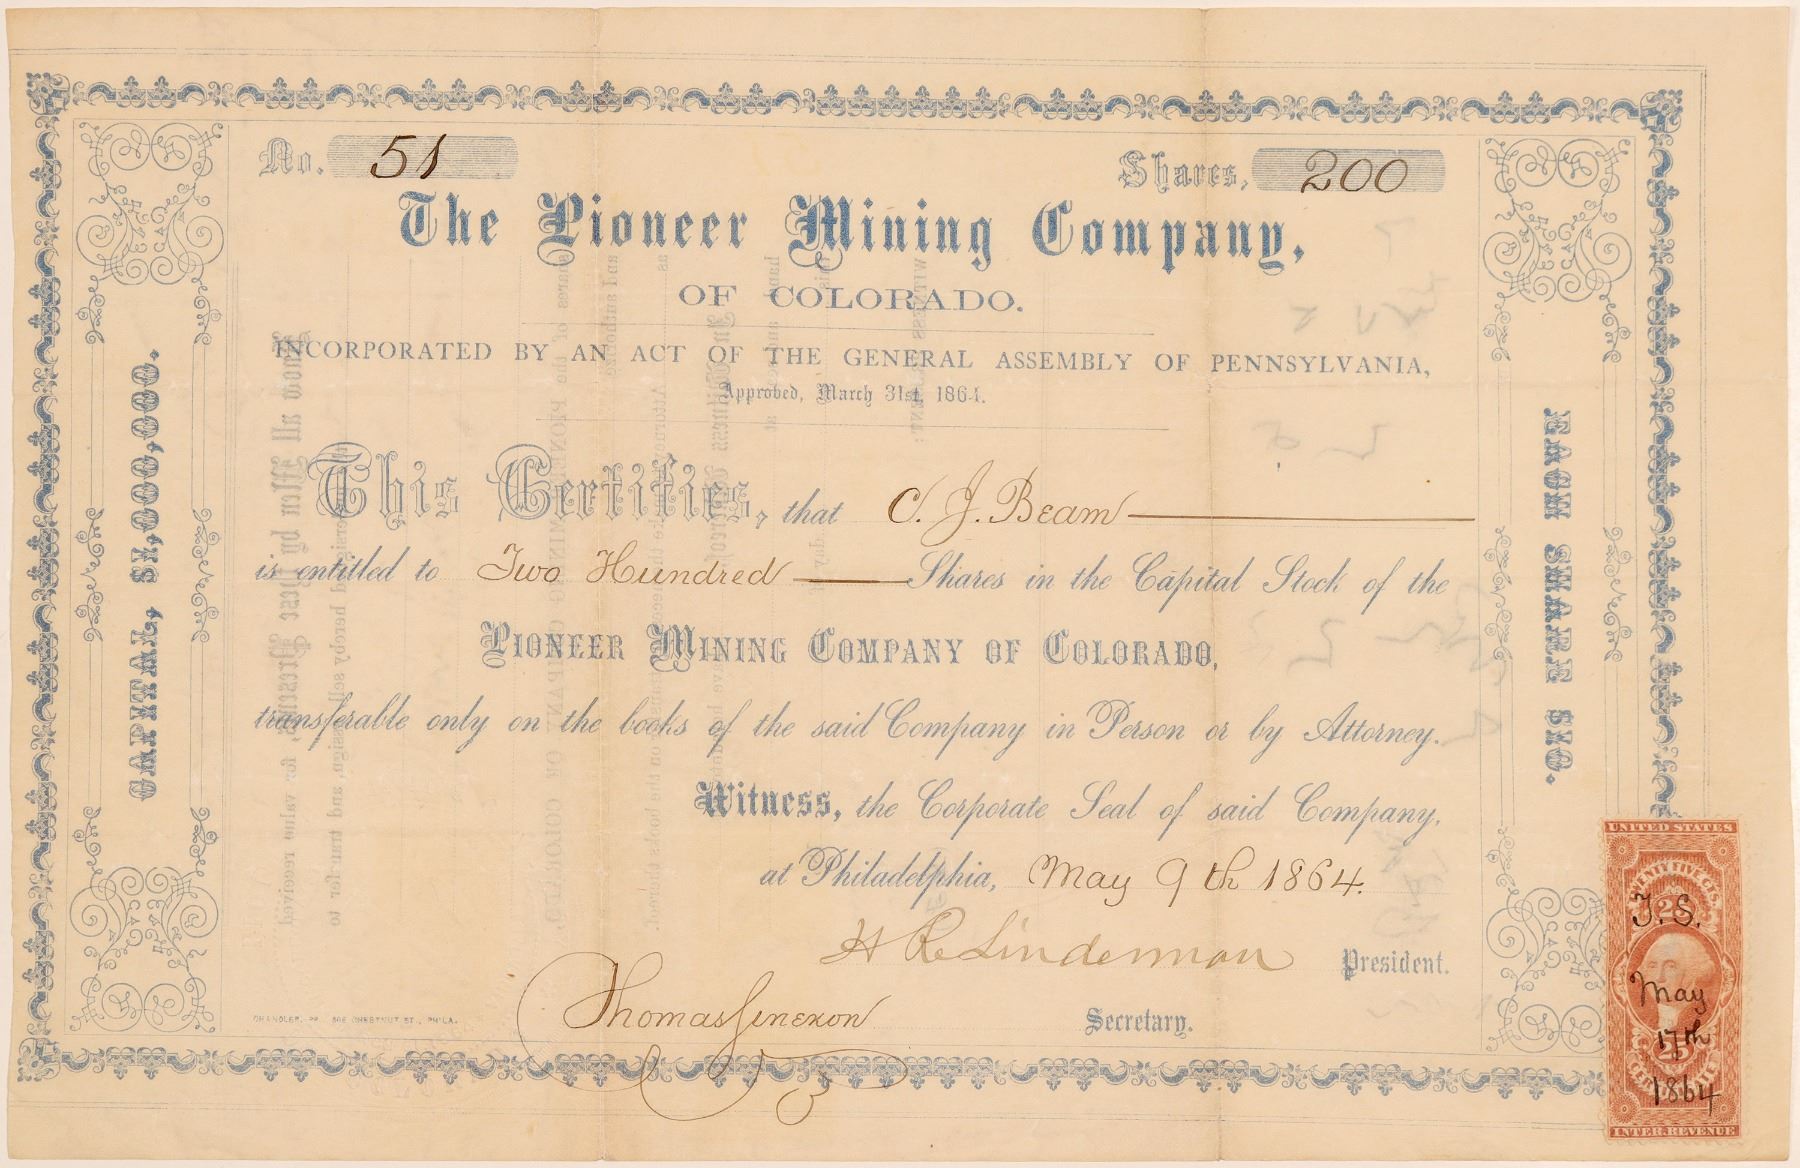 No. 51 Shares, 200
The Pioneer Mining Company,
OF COLORADO.
INCORPORATED BY AN ACT OF THE GENERAL ASSEMBLY OF PENNSYLVANIA,
Approved, March 31st, 1864.
This Certifies, that C. J. Beam
is entitled to Two Hundred Shares in the Capital Stock of the
PIONEER MINING COMPANY OF COLORADO,
transferable only on the books of the said Company in Person or by Attorney.
Witness, the Corporate Seal of said Company,
at Philadelphia, May 9th 1864.
H R Linderman President.
Thomas Simexon Secretary.
CHANDLER, PR. 306 CHESTNUT ST., PHILA.
CAPITAL, $1,000,000.
EACH SHARE $10.
UNITED STATES
TWENTY FIVE CTS.
25
T. S.
May
17th
25
CERTIFICATE
1864
INTER. REVENUE